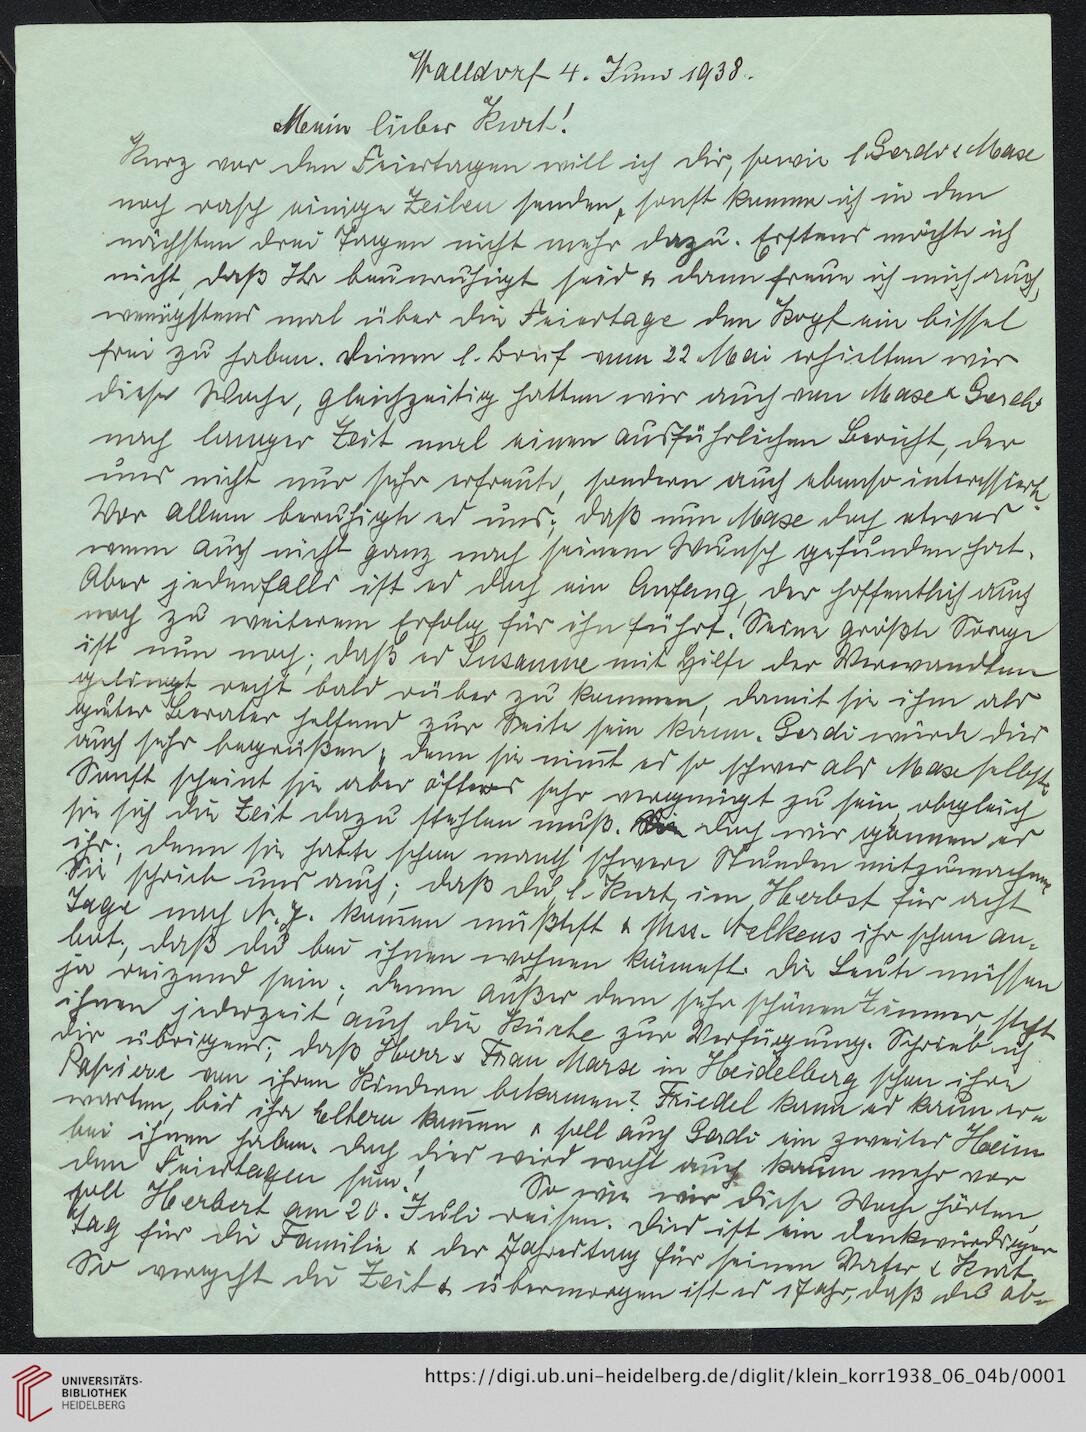 Walldorf 4. Juni 1938.
Mein lieber Kurt!
Kurz vor den Feiertagen will ich Dir, sowie l. Gerdi & Maxe
noch rasch einige Zeilen senden, sonst komme ich in den
nächsten drei Tagen nicht mehr dazu. Erstens möchte ich
nicht, daß Ihr beunruhigt seid & dann freue ich mich auch,
wenigstens mal über die Feiertage den Kopf ein bissel
frei zu haben. Deinen l. Brief vom 22 Mai erhielten wir
diese Woche, gleichzeitig hatten wir auch von Maxe & Gerdi
nach langer Zeit mal einen ausführlichen Bericht, der
uns nicht nur sehr erfreute, sondern auch ebenso interessierte.
Vor allem beruhigte es uns, daß nun Maxe doch etwas
wenn auch nicht ganz nach seinem Wunsch gefunden hat.
Aber jedenfalls ist es doch ein Anfang, der hoffentlich auch
noch zu weiterem Erfolg für ihn führt. Seine größte Sorge
ist nun noch, daß es Susanne mit Hilfe der Verwandten
gelingt recht bald rüber zu kommen, damit sie ihm als
guter Berater helfend zur Seite sein kann. Gerdi würde dies
auch sehr begrüßen, denn sie nimt es so schwer als Maxe selbst.
Sonst scheint sie aber öfters sehr vergnügt zu sein, obgleich
sie sich die Zeit dazu stehlen muß. doch wir gönnen es
ihr, denn sie hatte schon manch' schwere Stunden mitzumachen.
Sie schrieb uns auch, daß Du, l. Kurt, im Herbst für acht
Tage nach N.Y. komen müßtest & Mss. Nelkens ihr schon an-
bot, daß Du bei ihnen wohnen könnest. Die Leute müssen
ja reizend sein, denn außer dem sehr schönen Zimmer, steht
ihnen jederzeit auch die Küche zur Verfügung. Schrieb ich
Dir übrigens, daß Herr & Frau Marx in Heidelberg schon ihre
Papiere von ihren Kindern bekamen? Friedel kann es kaum er-
warten, bis ihre Eltern komen & soll auch Gerdi ein zweites Heim
bei ihnen haben. Doch dies wird wohl auch kaum mehr vor
den Feiertagen sein! So wie wir diese Woche hörten,
soll Herbert am 20. Juli reisen. Dies ist ein denkwürdiger
Tag für die Familie & der Jahrestag für seinen Vater & Kurt.
So vergeht die Zeit & übermorgen ist es 1 Jahr, daß Du ab-
UNIVERSITÄTS-
BIBLIOTHEK
HEIDELBERG
https://digi.ub.uni-heidelberg.de/diglit/klein_korr1938_06_04b/0001